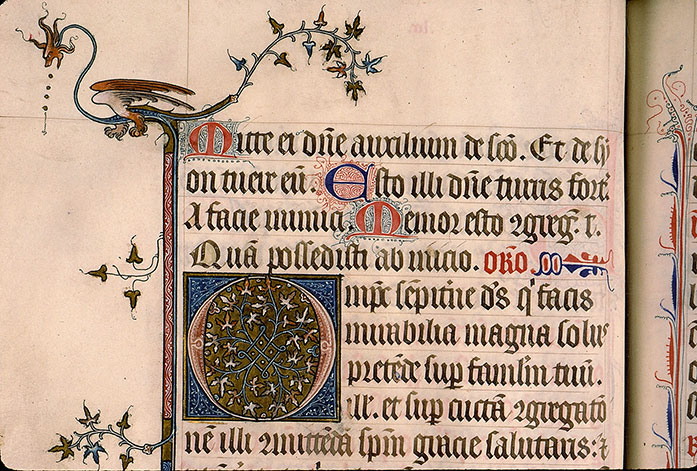 Mitte ei dñe auxilium de sc̃o. Et de sy
on tueir eũ. Esto illi dñe turris fort̃
A facie inimici. Memor esto ꝯgreg. t.
Quã possedisti ab inicio. oro
Omp̃c sẽpitñe d̃s q̃ facis
mirabilia magna solus
p̃tẽde sup̃ famłm tuũ.
ill. et sup̃ cũctã ꝯgregatõ
nẽ illi ꝯmittẽtã sp̃m gracie salutaris: ⁊